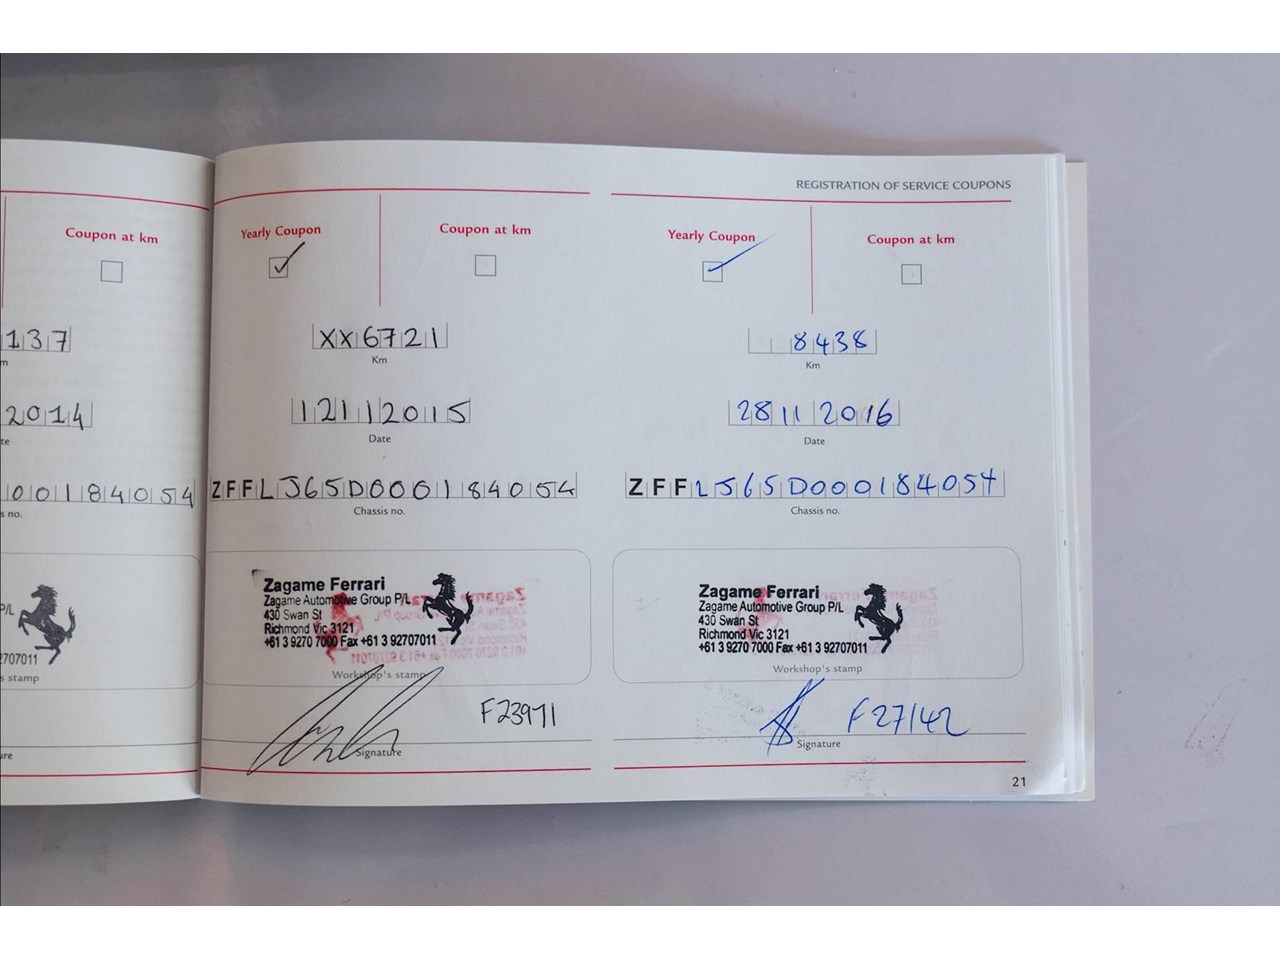 REGISTRATION OF SERVICE COUPONS
Coupon at km
137
2014
00184054
P/L
2707011
s stamp
Yearly Coupon
Coupon at km
XX6721
Km
12112015
Date
ZFFLJ65D000184054
Chassis no.
Zagame Ferrari
Zagame Automotive Group P/L
430 Swan St
Richmond Vic 3121
+61 3 9270 7000 Fax +61 3 92707011
Workshop's stamp
F23971
Signature
Yearly Coupon
Coupon at km
8438
Km
28 11 2016
Date
ZFFLJ65D000184054
Chassis no.
Zagame Ferrari
Zagame Automotive Group P/L
430 Swan St
Richmond Vic 3121
+61 3 9270 7000 Fax +61 3 92707011
Workshop's stamp
F27142
Signature
21